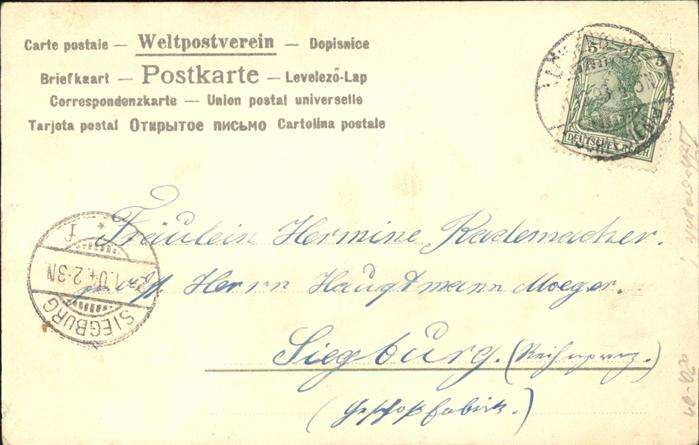 Carte postale — Weltpostverein — Dopisnice
Briefkaart — Postkarte — Levelező-Lap
Correspondenzkarte — Union postal universelle
Tarjeta postal Открытое письмо Cartolina postale
5
DEUTSCHES
SIEGBURG
2-3N
f
Fräulein Hermine Rademacher.
Herrn Hauptmann Moeger.
Siegburg. (Rheinprovz.)
(Geschoßfabrik.)